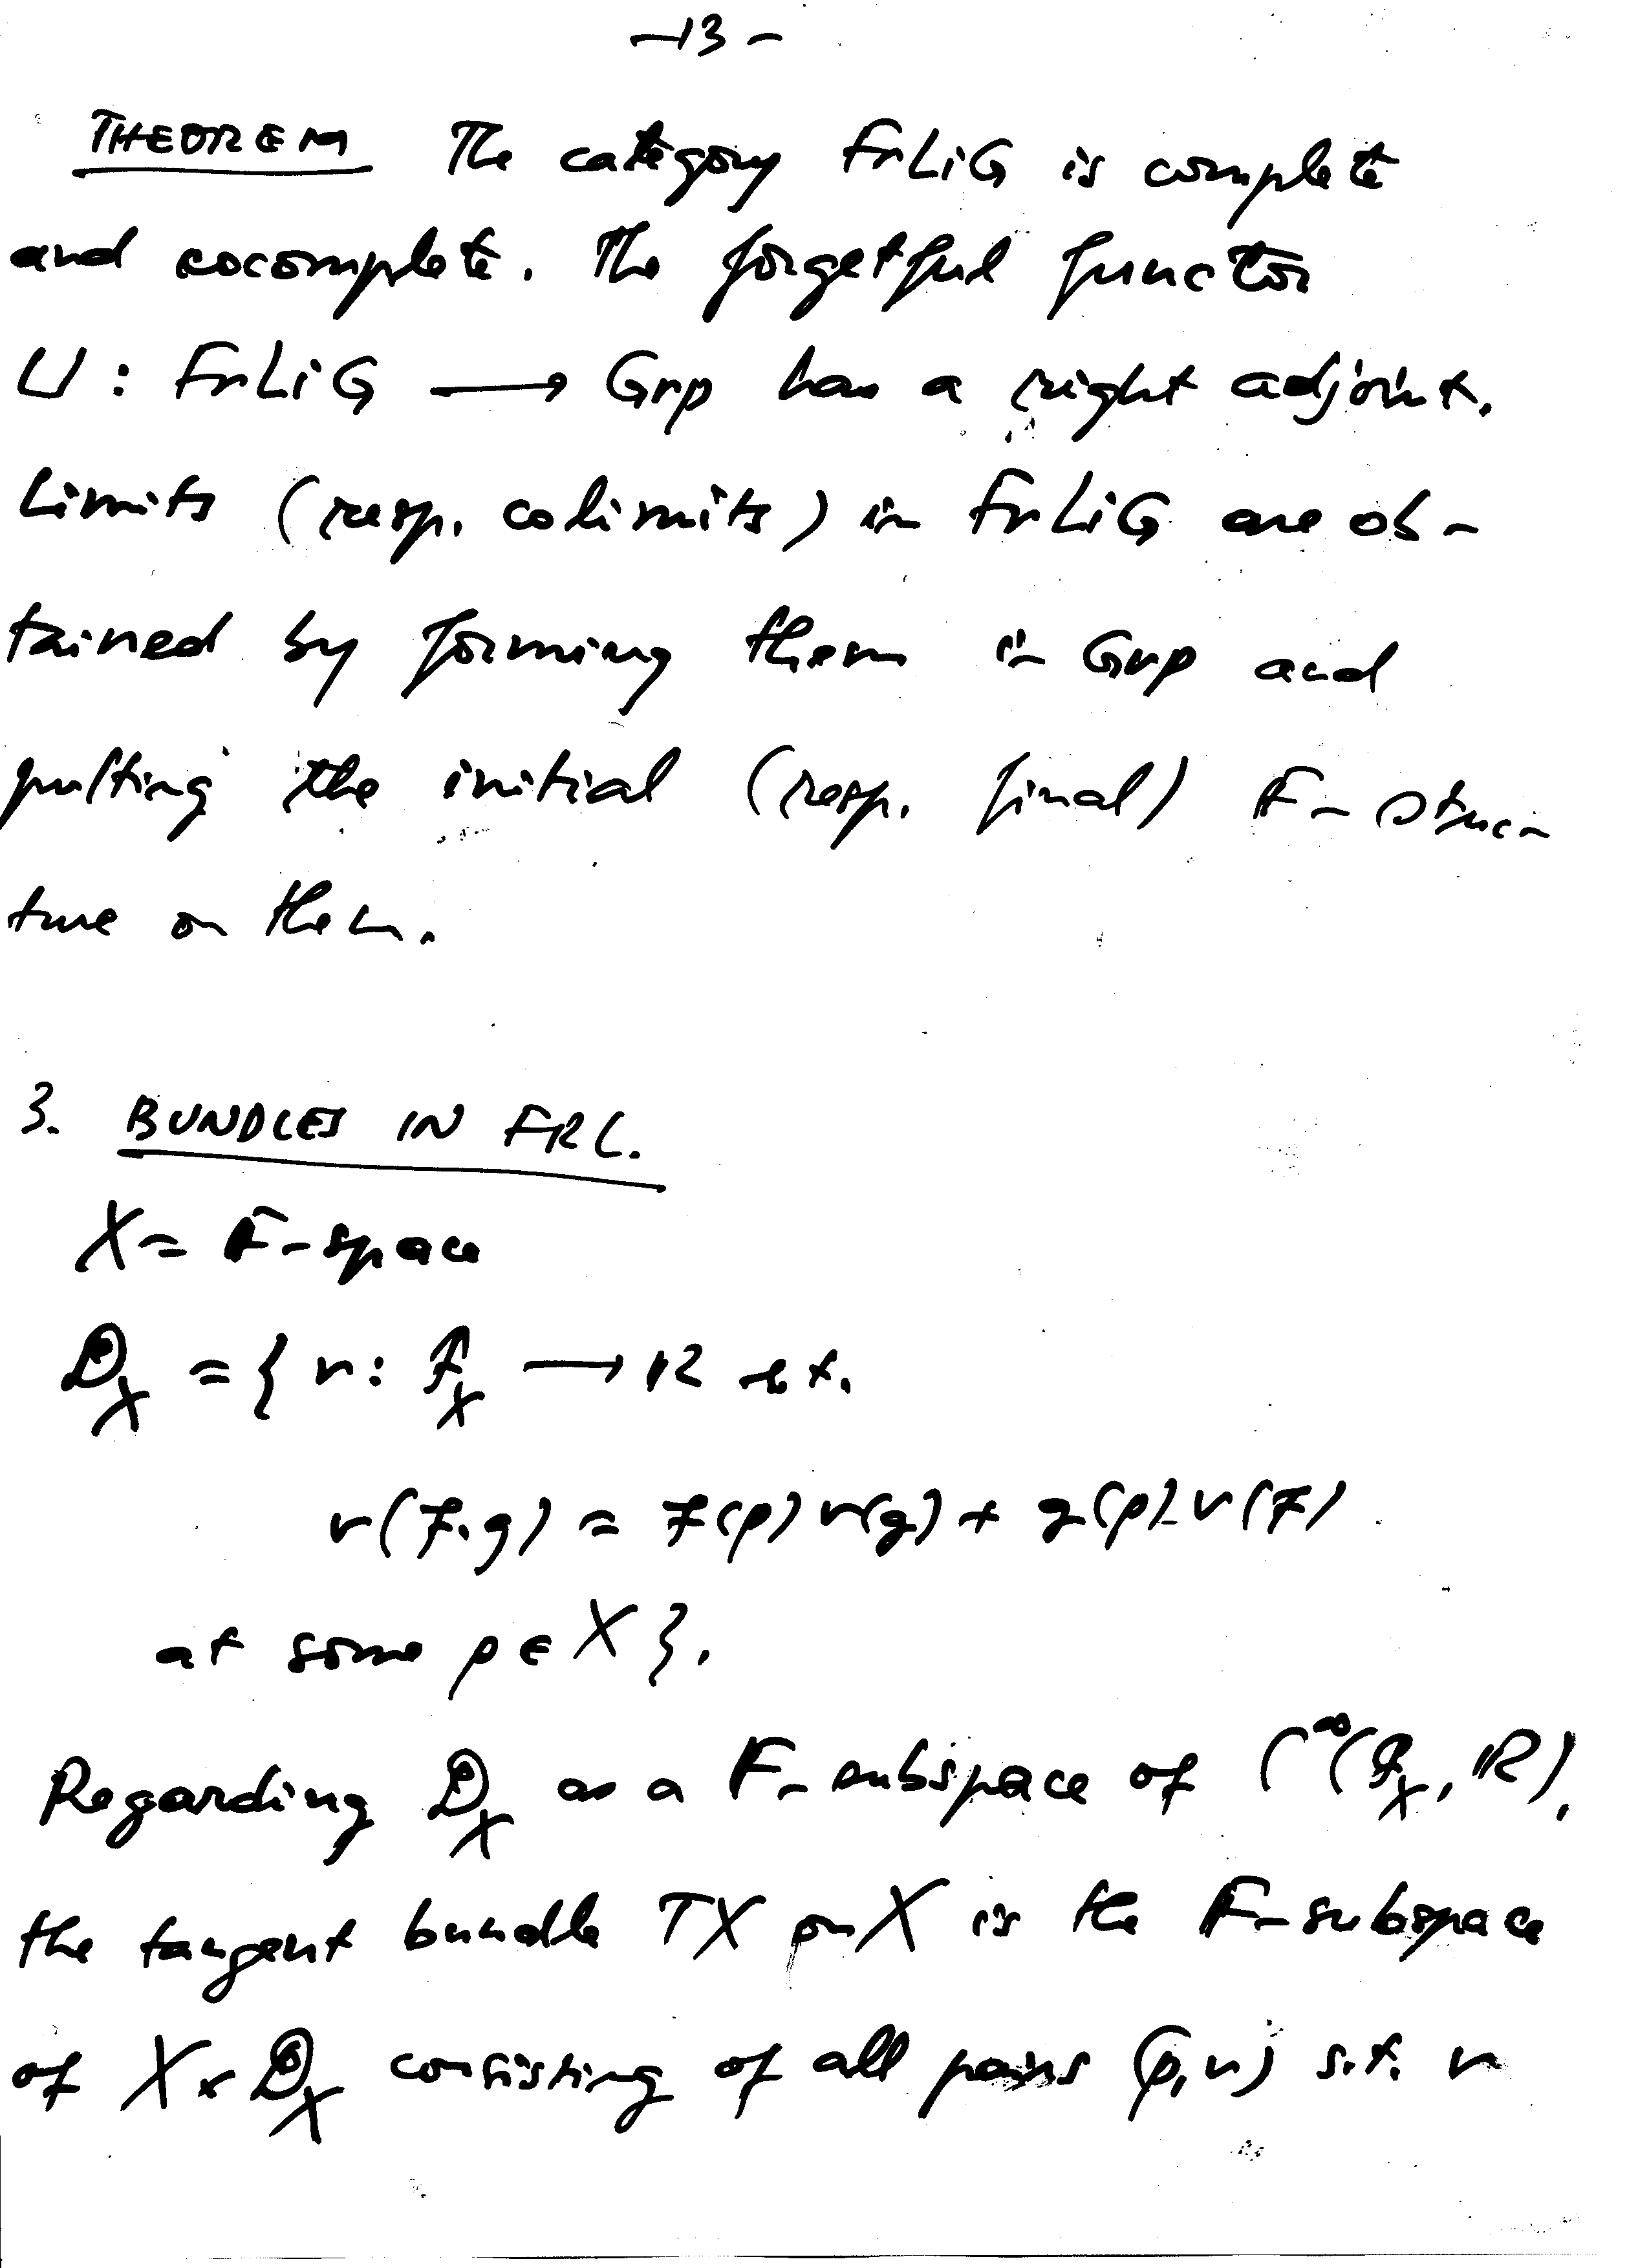 -13-
THEOREM The category FrLiG is complete
and cocomplete. The forgetful functor
U : FrLiG ⟶ Grp has a right adjoint.
Limits (resp. colimits) in FrLiG are ob-
tained by forming them in Grp and
putting the initial (resp. final) F-struc-
ture on them.
3. BUNDLES IN FRL.
X = F-space
𝒟_X = { v : ℱ_X ⟶ ℝ s.t.
v(f.g) = f(p) v(g) + g(p).v(f)
at some p ∈ X }.
Regarding 𝒟_X as a F-subspace of C^∞(ℱ_X, ℝ),
the tangent bundle TX on X is the F-subspace
of X × 𝒟_X consisting of all pairs (p,v) s.t. v